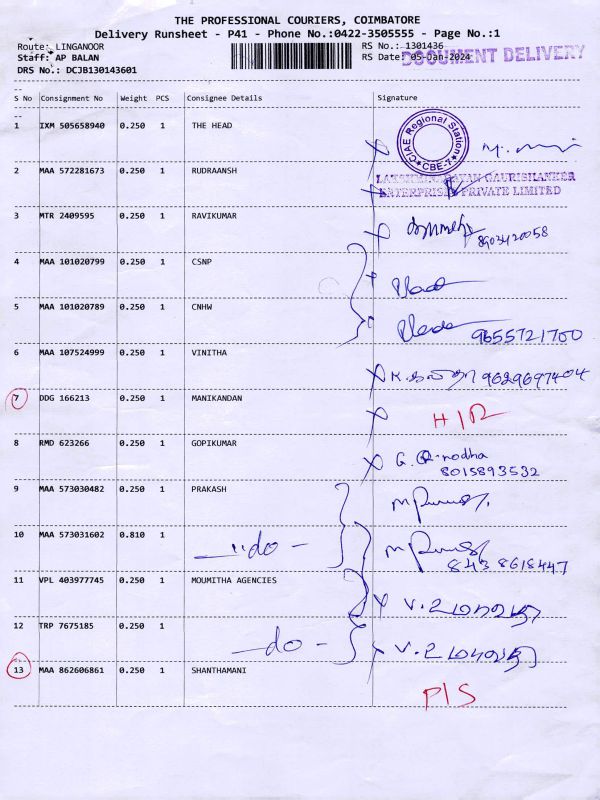 THE PROFESSIONAL COURIERS, COIMBATORE
Delivery Runsheet - P41 - Phone No.:0422-3505555 - Page No.:1
Route: LINGANOOR RS No.: 1301436
Staff: AP BALAN RS Date: 05-Jan-2024
DOCUMENT DELIVERY
DRS No.: DCJB130143601
S No Consignment No Weight PCS Consignee Details Signature
1 IXM 505658940 0.250 1 THE HEAD
CIAE Regional Station
★ CBE-7 ★
2 MAA 572281673 0.250 1 RUDRAANSH
GAURISHANKER
ENTERPRISES PRIVATE LIMITED
3 MTR 2409595 0.250 1 RAVIKUMAR
8903420058
4 MAA 101020799 0.250 1 CSNP
5 MAA 101020789 0.250 1 CNHW
9655721700
6 MAA 107524999 0.250 1 VINITHA
9629697404
7 DDG 166213 0.250 1 MANIKANDAN
H/R
8 RMD 623266 0.250 1 GOPIKUMAR
8015893532
9 MAA 573030482 0.250 1 PRAKASH
10 MAA 573031602 0.810 1 - "do -
8438618447
11 VPL 403977745 0.250 1 MOUMITHA AGENCIES
12 TRP 7675185 0.250 1 - do -
13 MAA 862606861 0.250 1 SHANTHAMANI
P/S